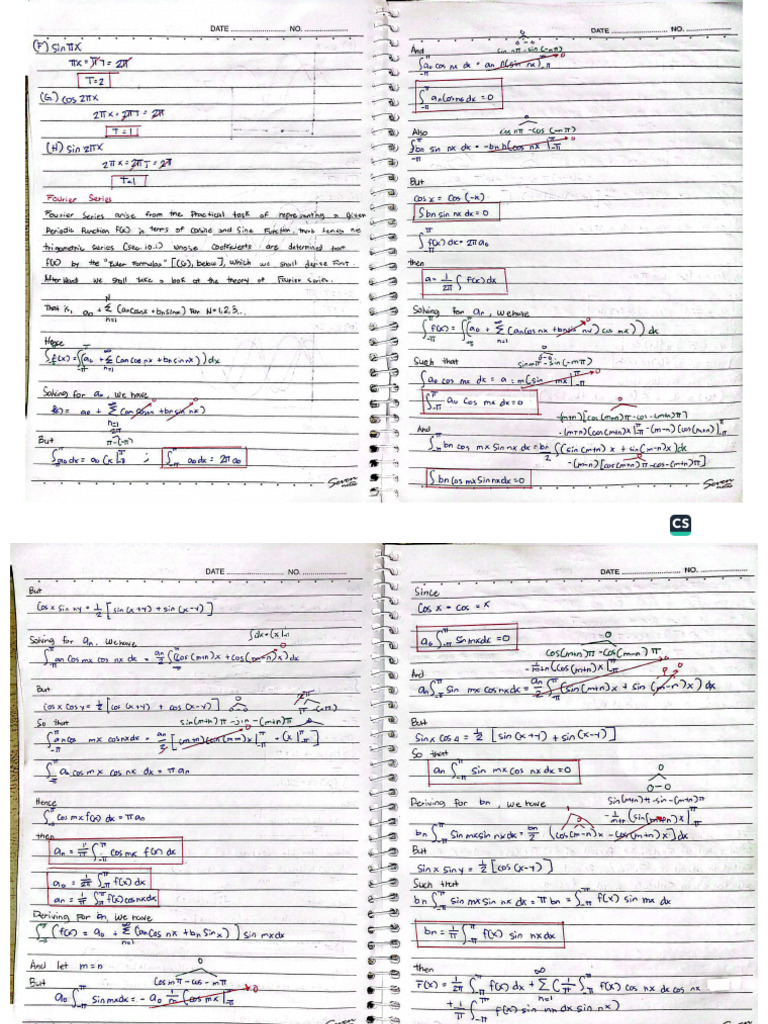 DATE NO.
(F) sin πx
πx = πT = 2π
T=2
(G) cos 2πx
2πx = 2πT = 2π
T=1
(H) sin 2πx
2πx = 2πT = 2π
T=1
Fourier Series
Fourier Series arise from the Practical task of representing a given
Periodic function f(x) in terms of cosine and sine function,
trigometric series (sec. 10.1) whose coefficients are determined
f(x) by the "Euler Formulas" [(6), below], which we shall derive first.
Afterward we shall take a look at the theory of Fourier series.
That is, a₀ + Σ (an cos nx + bn sin nx) for N=1,2,3..
Hence
∫ f(x) = ∫(a₀ + Σ (an cos nx + bn sin nx)) dx
Solving for a₀, we have
f(x) = a₀ + Σ (an cos nx + bn sin nx)
n=1
2π
π-(-π)
But
∫ a₀ dx = a₀ (x|; ∫ a₀ dx = 2πa₀
Seven
DATE NO.
0
0-0
And sin nπ - sin (-nπ)
∫ an cos nx dx = an n(sin nx) 0
∫ an cos nx dx = 0
0
Also cos nπ - cos (-nπ)
∫ bn sin nx dx = -bn n(cos nx| 0
But
cos x = cos (-x)
∫ bn sin nx dx = 0
∫ f(x) dx = 2πa₀
then
a = 1/2π ∫ f(x) dx
Solving for an, we have
∫ f(x) = ∫(a₀ + Σ (an cos nx + bn sin nx) cos mx)) dx
Such that sin mπ - sin (-mπ)
∫ a₀ cos mx dx = a = m(sin mx| 0
∫ a₀ cos mx dx = 0
-(m+n)[cos(m+n)π - cos -(m+n)π]
And -(m+n)(cos(m+n)x| -(m-n)(cos(m-n)|
∫ bn cos mx sin nx dx = bn/2 ∫(sin(m+n)x + sin(m-n)x) dx
-(m-n)[cos(m+n)π - cos -(m+n)π]
∫ bn cos mx sin nx dx = 0
Seven
CS
DATE NO.
But
cos x sin xy = 1/2 [sin (x+y) + sin (x-y)]
Solving for an, we have ∫dx = (x|
∫ an cos mx cos nx dx = an/2 ∫(cos(m+n)x + cos(m-n)x) dx
But
cos x cos y = 1/2 [cos (x+y) + cos (x-y)]
So that sin(m+n)π - sin -(m+n)π
∫ an cos mx cos nx dx = an/2 [(m+n)(sin(m+n)x| + (x|]
∫ a cos mx cos nx dx = πan
Hence
∫ cos mx f(x) dx = πan
then
an = 1/π ∫ cos mx f(x) dx
a₀ = 1/2π ∫ f(x) dx
an = 1/π ∫ f(x) cos nx dx
Deriving for bn, we have
∫ (f(x) = a₀ + Σ (an cos nx + bn sin x)] sin mx dx
And let m = n 0
But cos mπ - cos - mπ
a₀ ∫ sin mx dx = - a₀ 1/m (cos mx| 0
DATE NO.
Since
cos x = cos = x
a₀ ∫ sin mx dx = 0
0
cos(m+n)π - cos(m-n)π
-1/m+n (cos(m+n)x|
And
an ∫ sin mx cos nx dx = an/2 ∫ (sin(m+n)x + sin(m-n)x) dx
But
sin x cos y = 1/2 [sin (x+y) + sin (x-y)]
So that
an ∫ sin mx cos nx dx = 0
0
0-0
Deriving for bn, we have sin(m+n)π - sin -(m+n)π
-1/m+n (sin(m+n)x|
bn ∫ sin mx sin nx dx = bn/2 (cos(m-n)x - cos(m+n)x] dx
But
sin x sin y = 1/2 [cos (x-y)]
Such that
bn ∫ sin mx sin nx dx = π bn = ∫ f(x) sin mx dx
bn = 1/π ∫ f(x) sin nx dx
then
F(x) = 1/2π ∫ f(x) dx + Σ (1/π ∫ f(x) cos nx dx cos nx
+ 1/π ∫ f(x) sin nx dx sin nx)